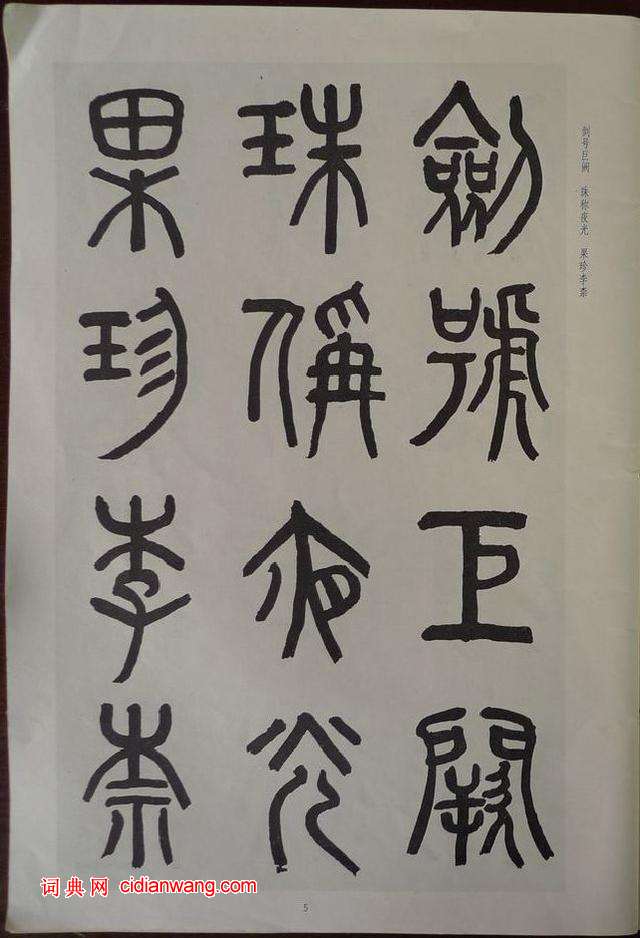 劍號巨闕
珠稱夜光
果珍李柰
剑号巨阙 珠称夜光 果珍李柰
词典网 cidianwang.com
5